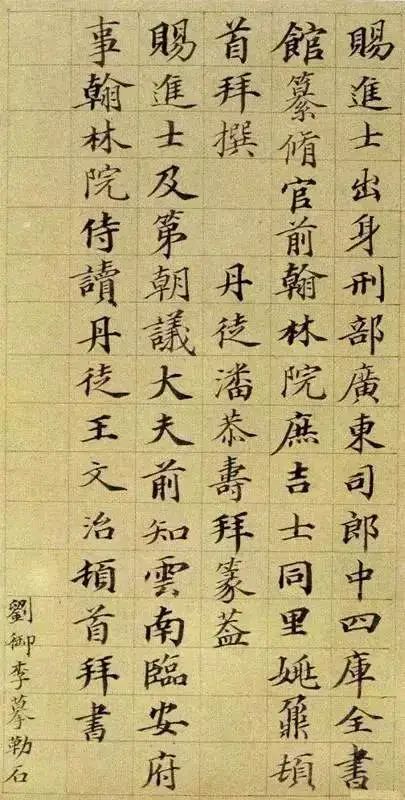 賜進士出身刑部廣東司郎中四庫全書
館篹脩官前翰林院庶吉士同里姚鼐頓
首拜撰 丹徒潘恭壽拜篆蓋
賜進士及第朝議大夫前知雲南臨安府
事翰林院侍讀丹徒王文治頓首拜書
劉御李摹勒石